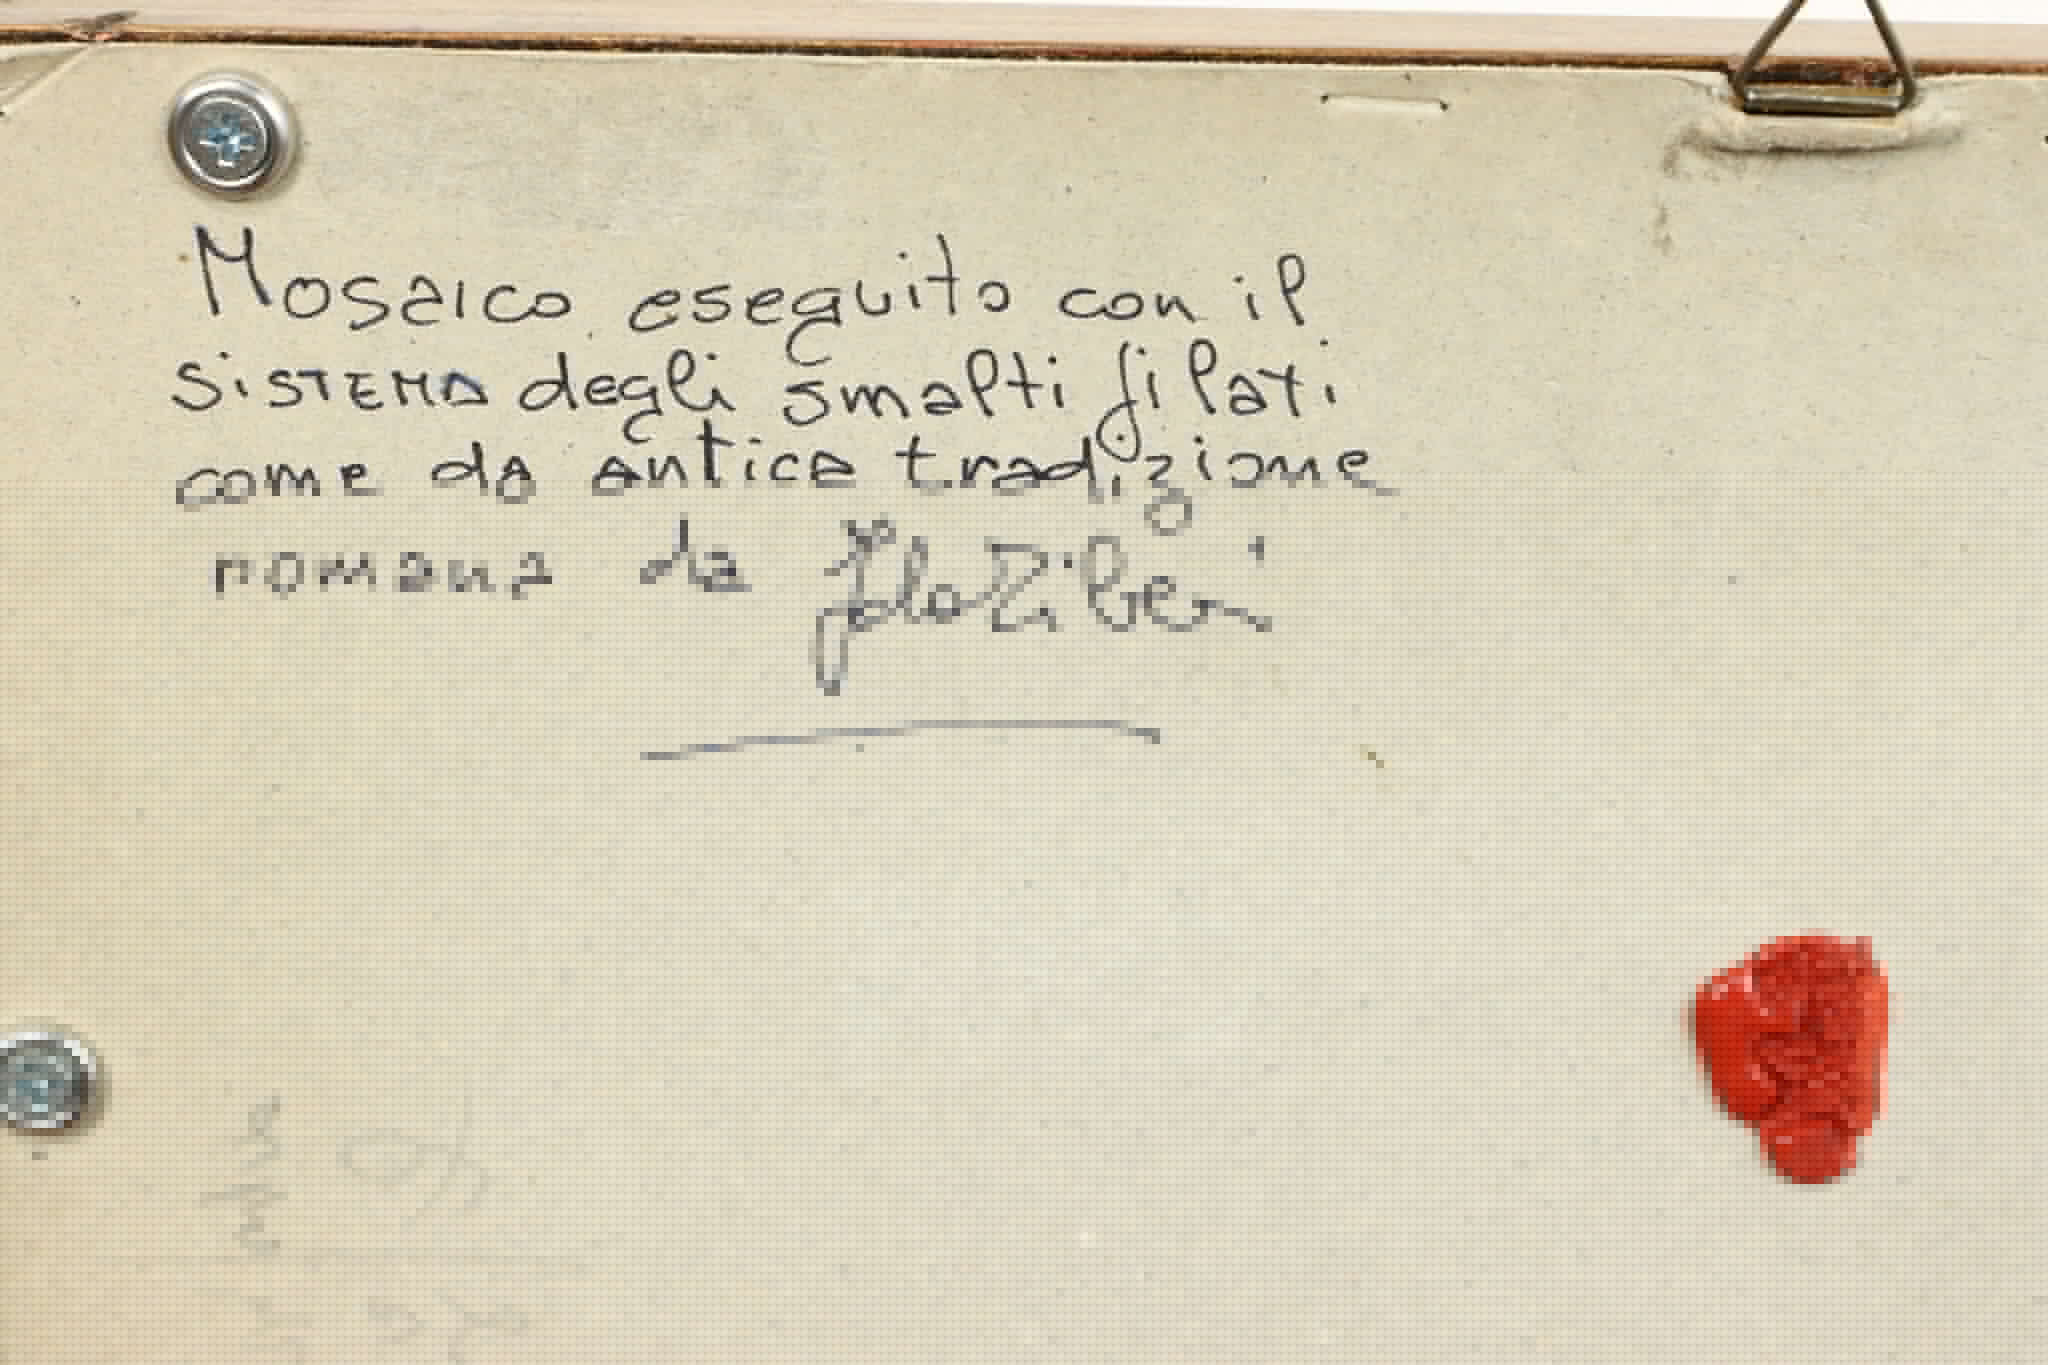 Mosaico eseguito con il
SiSTEMA degli smalti filati
come da antica tradizione
romana da